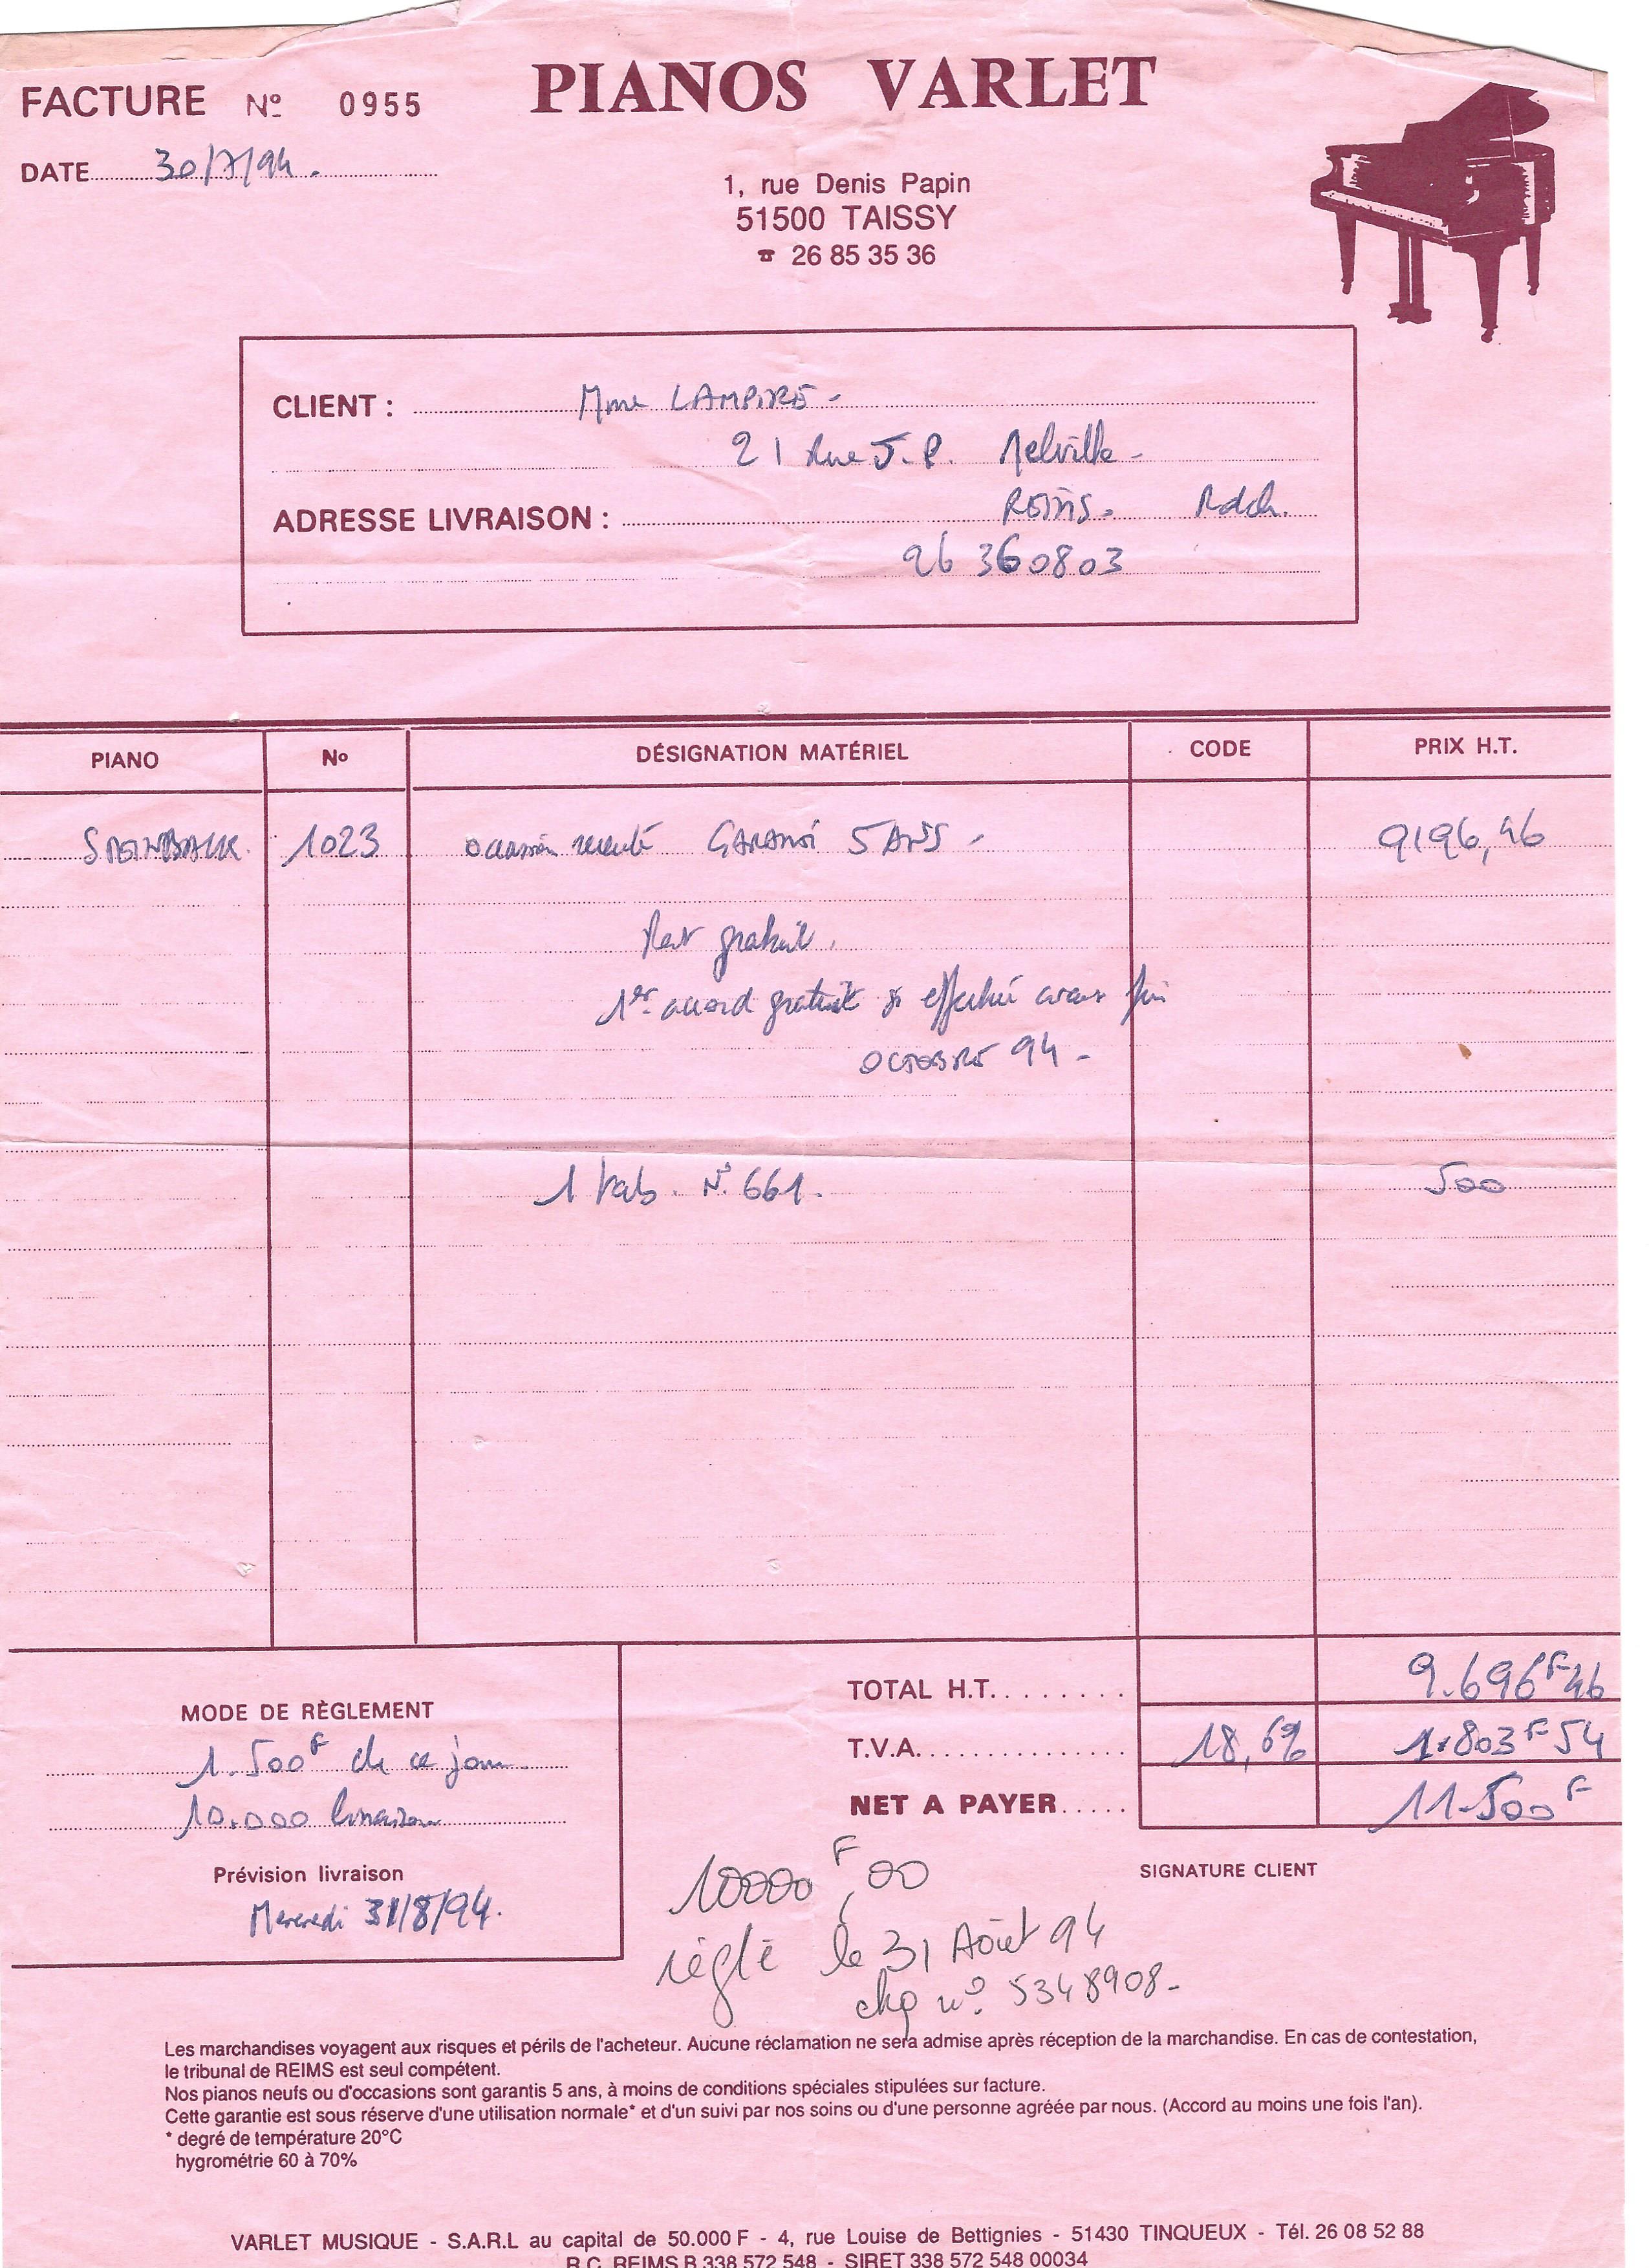 FACTURE Nº 0955
PIANOS VARLET
DATE 30/7/94.
1, rue Denis Papin
51500 TAISSY
☎ 26 85 35 36
CLIENT : Mme LAMPIRE -
21 Rue J. P. Melville -
ADRESSE LIVRAISON : REIMS. Rdch.
26 360803
PIANO Nº DÉSIGNATION MATÉRIEL CODE PRIX H.T.
STEINBACK 1023 occasion récente GARANTI 5 ANS - 9196,46
Port gratuit.
1er accord gratuit si effectué avant fin
OCTOBRE 94 -
1 tab. N° 661. 500
TOTAL H.T. 9.696F46
MODE DE RÈGLEMENT
T.V.A. 18,6% 1.803F54
1.500F de ce jour.
NET A PAYER 11.500F
10.000 livraison
Prévision livraison
SIGNATURE CLIENT
Mercredi 31/8/94.
10000F,00
réglé le 31 Août 94
chq n° 5348908-
Les marchandises voyagent aux risques et périls de l'acheteur. Aucune réclamation ne sera admise après réception de la marchandise. En cas de contestation,
le tribunal de REIMS est seul compétent.
Nos pianos neufs ou d'occasions sont garantis 5 ans, à moins de conditions spéciales stipulées sur facture.
Cette garantie est sous réserve d'une utilisation normale* et d'un suivi par nos soins ou d'une personne agréée par nous. (Accord au moins une fois l'an).
* degré de température 20°C
hygrométrie 60 à 70%
VARLET MUSIQUE - S.A.R.L au capital de 50.000 F - 4, rue Louise de Bettignies - 51430 TINQUEUX - Tél. 26 08 52 88
R.C. REIMS B 338 572 548 - SIRET 338 572 548 00034